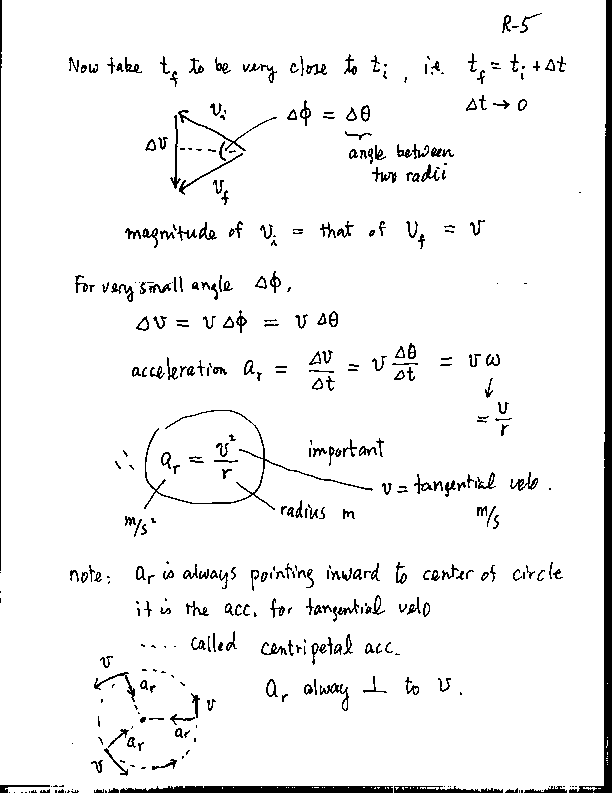 R-5
Now take t_f to be very close to t_i, i.e. t_f = t_i + Δt
Δt → 0
v_i
Δφ = Δθ
Δv
angle between
two radii
v_f
magnitude of v_i = that of v_f = v
For very small angle Δφ,
Δv = v Δφ = v Δθ
acceleration a_r = Δv/Δt = v Δθ/Δt = v ω
↓
= v/r
∴ a_r = v²/r
important
v = tangential velo.
m/s²
radius m
m/s
note: a_r is always pointing inward to center of circle
it is the acc. for tangential velo
.... called centripetal acc.
a_r alway ⊥ to v.
v
a_r
v
a_r
a_r
v